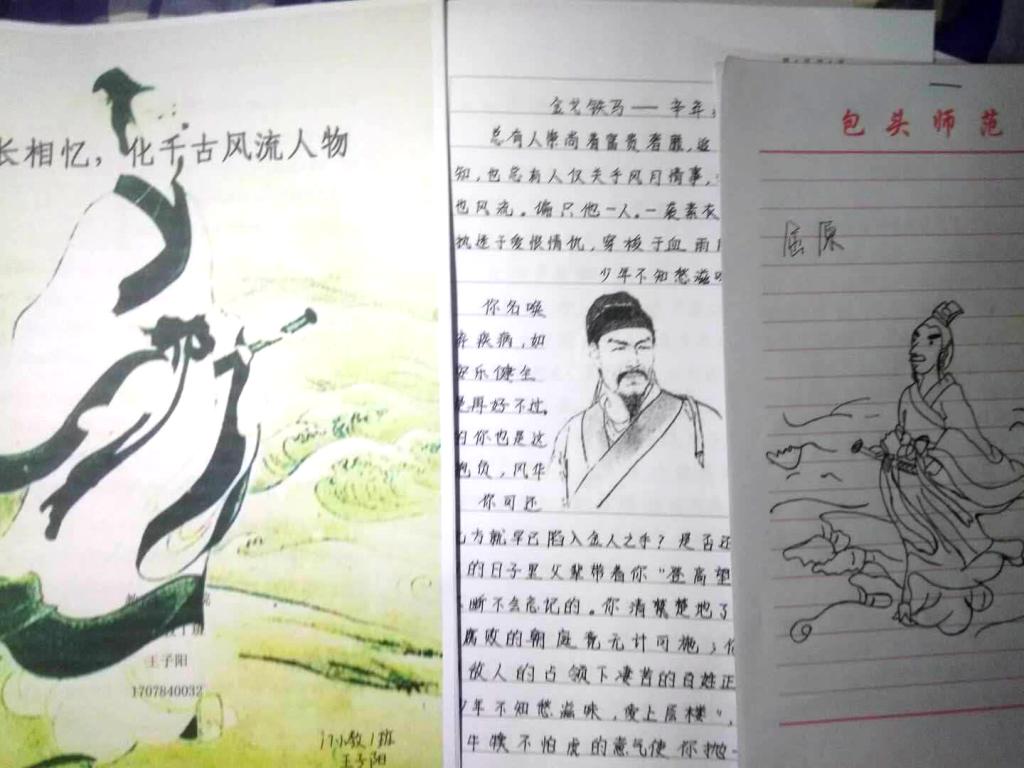 长相忆，化千古风流人物
王子阳
1707840032
17小教1班
王子阳
金戈铁马——辛弃
总有人崇尚着富贵奢靡，
知，也总有人仅关乎风月情事，
也风流。偏只他一人。一袭素衣
执迷于爱恨情仇，穿梭于血雨
少年不知愁滋味
你名唤
弃疾病，如
安乐健全
是再好不过，
的你也是这
抱负，风华
你可还
方就早已陷入金人之手？是否还
的日子里父辈带着你“登高望
断不会忘记的。你清楚地了
腐败的朝庭竟无计可施；
敌人的占领下凄苦的百姓正
少年不知愁滋味，爱上层楼”，
牛犊不怕虎的意气使你抛
包头师范
屈原